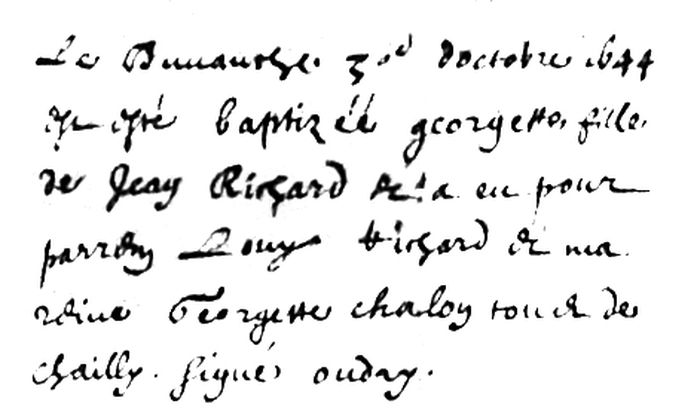 Le Dimanche 30e d'octobre 1644
est esté baptizéé georgette fille
de Jean Richard & a eu pour
parrein Louys Richard et ma
reine Georgette chalon tous de
chailly. signé oudry.